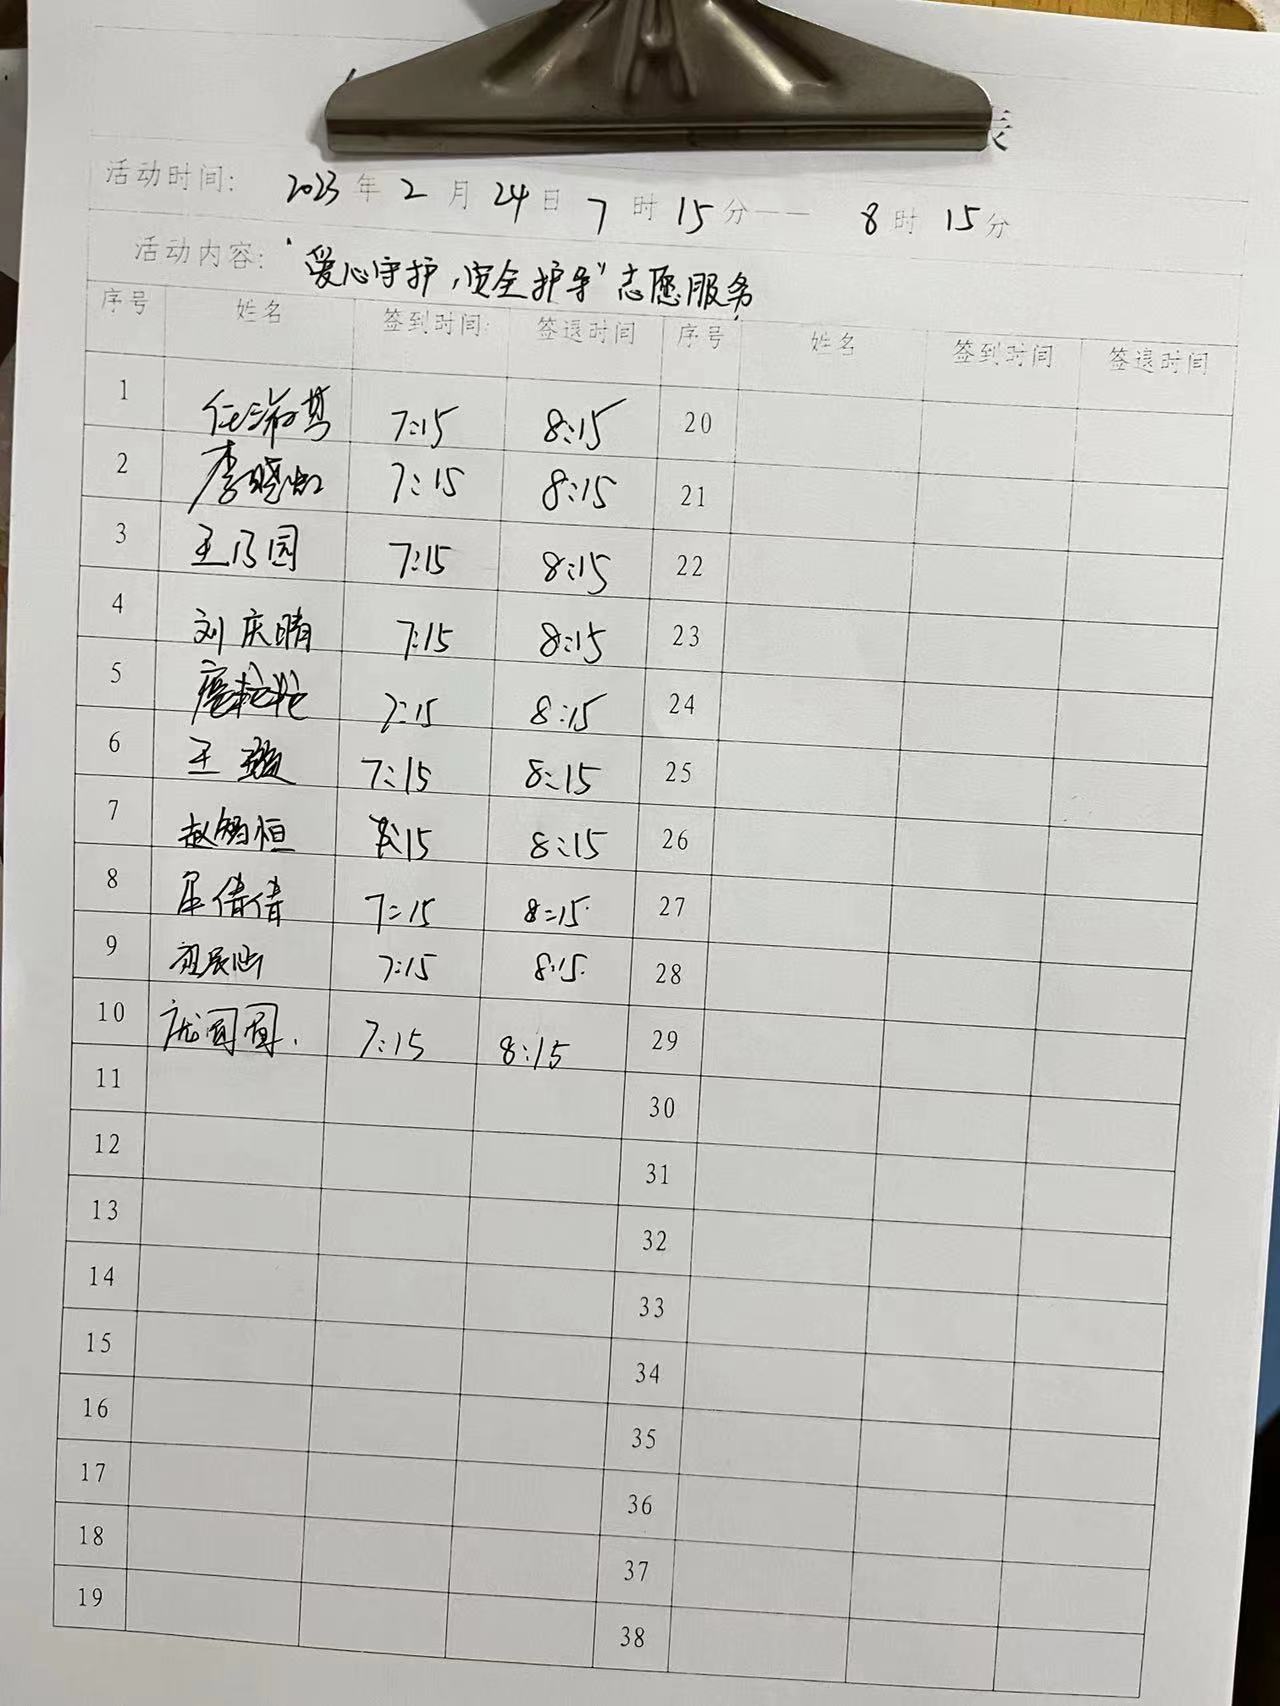 表
活动时间: 2023年2月24日7时15分——8时15分
活动内容: "爱心守护,安全护导"志愿服务
序号 姓名 签到时间 签退时间 序号 姓名 签到时间 签退时间
1 任淑慧 7:15 8:15 20
2 李晓虹 7:15 8:15 21
3 王乃园 7:15 8:15 22
4 刘庆晴 7:15 8:15 23
5 7:15 8:15 24
6 王璇 7:15 8:15 25
7 7:15 8:15 26
8 屈倩倩 7:15 8:15 27
9 7:15 8:15 28
10 庞圆圆. 7:15 8:15 29
11 30
12 31
13 32
14 33
15 34
16 35
17 36
18 37
19 38